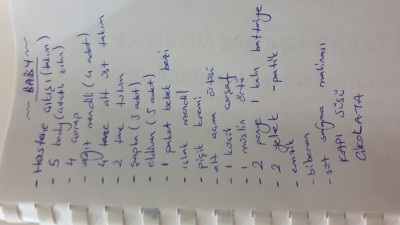 ~ BABY ~
- Hastane çıkışı (takım)
- 5 body (atletli zıbın)
- 4 çorap
- ağız mendili (4 adet)
- 4 tane alt üst takım
- 2 tane tulum
- şapka (3 adet)
- eldiven (5 adet)
- 1 paket bebek bezi
- ıslak mendil
- pişik kremi
- alt açma örtüsü
- 1 küçük çarşaf
- 1 müslin örtü
- 2 penye 1 kalın battaniye
- 2 yelek - patik
- emzik
- biberon
- süt sağma makinası
KAPI SÜSÜ
ÇİKOLATA